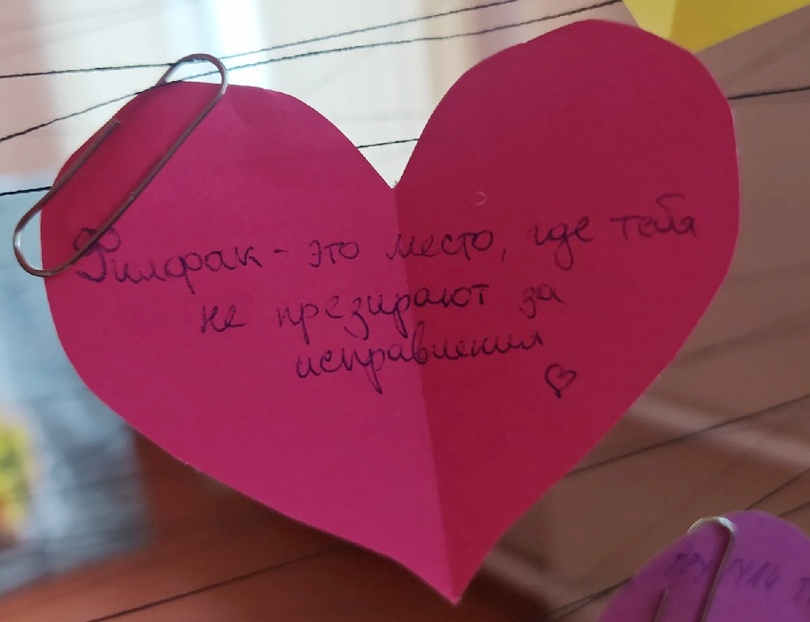 Филфак - это место, где тебя
не презирают за
исправления